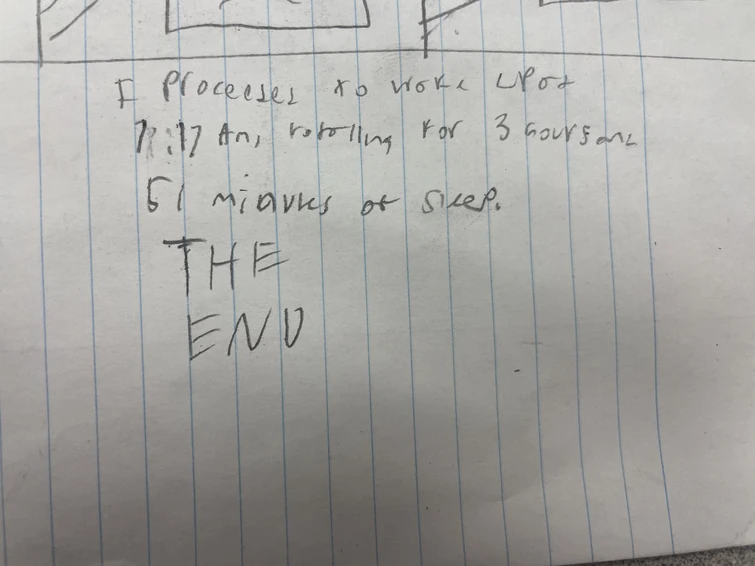 I Proceeses to woke UPot
7:17 Am, totolling for 3 hours and
51 minutes of sleep.
THE
END